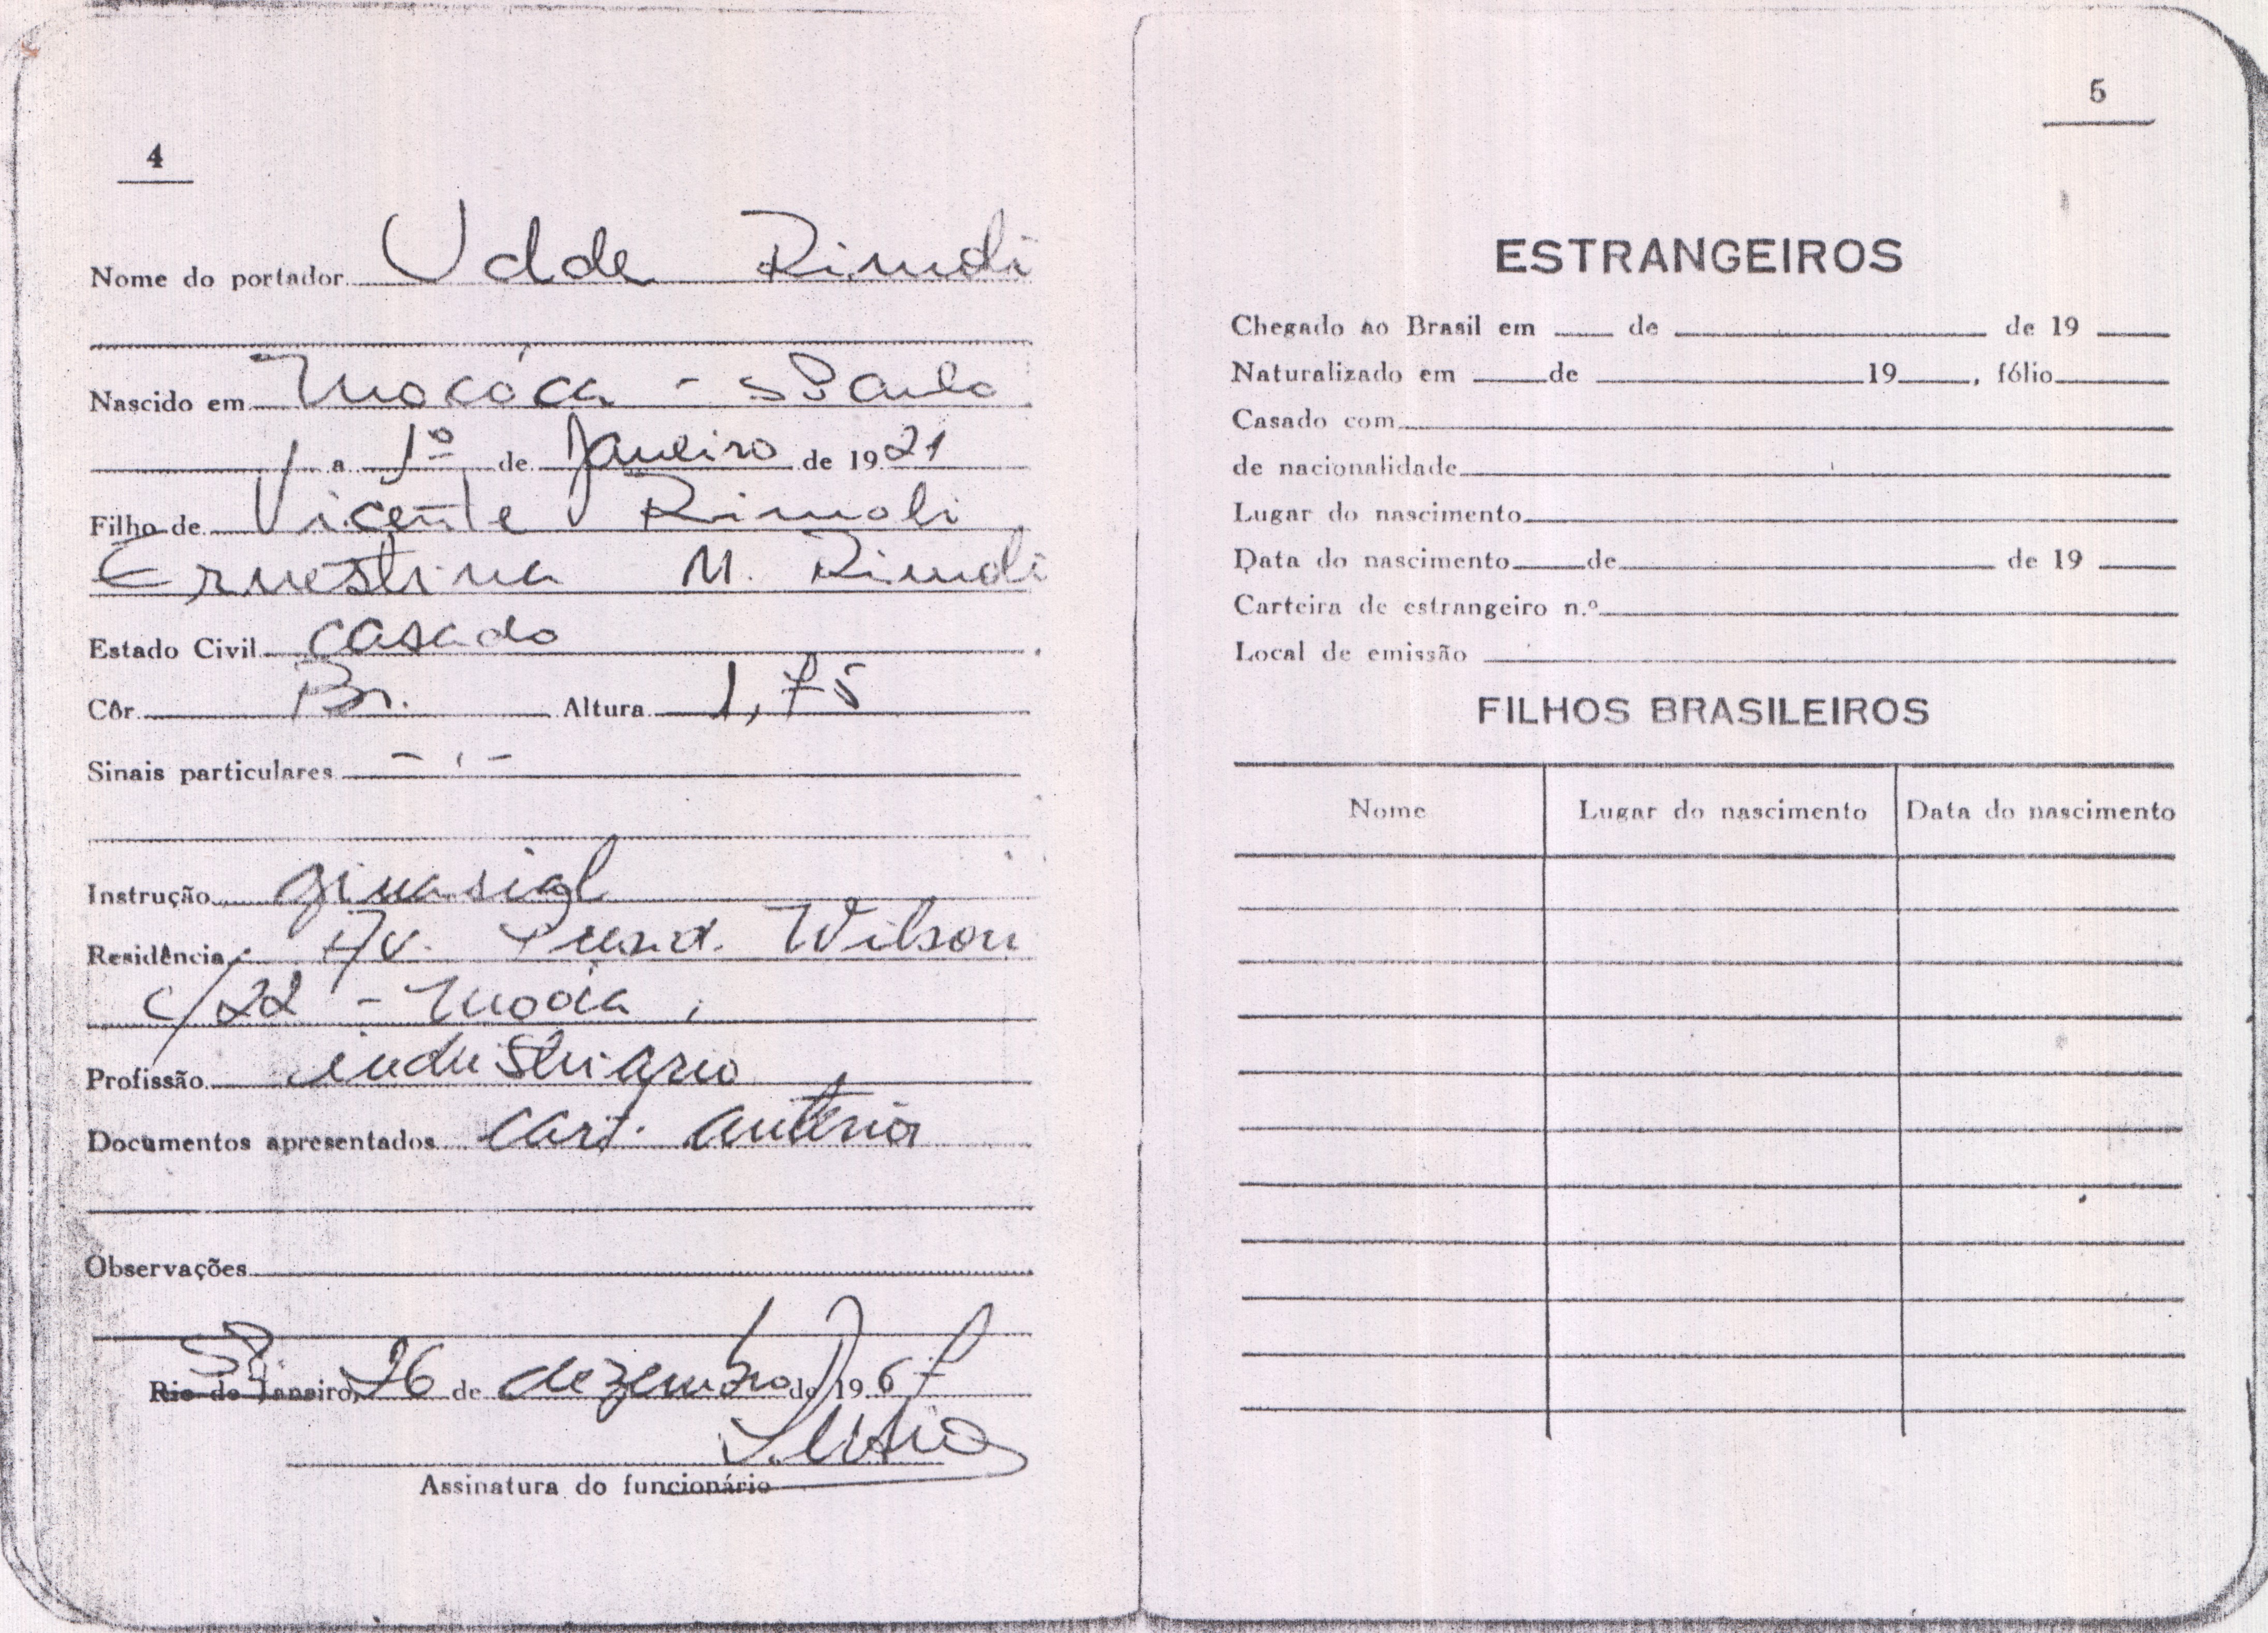 4
Nome do portador Udde Rimoli
Nascido em Mocóca - S Paulo
a 1º de Janeiro de 1921
Filho de Vicente Rimoli
Ernestina M. Rimoli
Estado Civil casado
Côr Br. Altura 1,75
Sinais particulares - . -
Instrução ginasial
Residência Av. Presid. Wilson
c/22 - Moóca
Profissão industriário
Documentos apresentados cart. anterior
Observações
Rio de Janeiro, SP. 26 de dezembro de 1967
Assinatura do funcionário
5
ESTRANGEIROS
Chegado ao Brasil em de de 19
Naturalizado em de 19 , fólio
Casado com
de nacionalidade
Lugar do nascimento
Data do nascimento de de 19
Carteira de estrangeiro n.º
Local de emissão
FILHOS BRASILEIROS
Nome Lugar do nascimento Data do nascimento